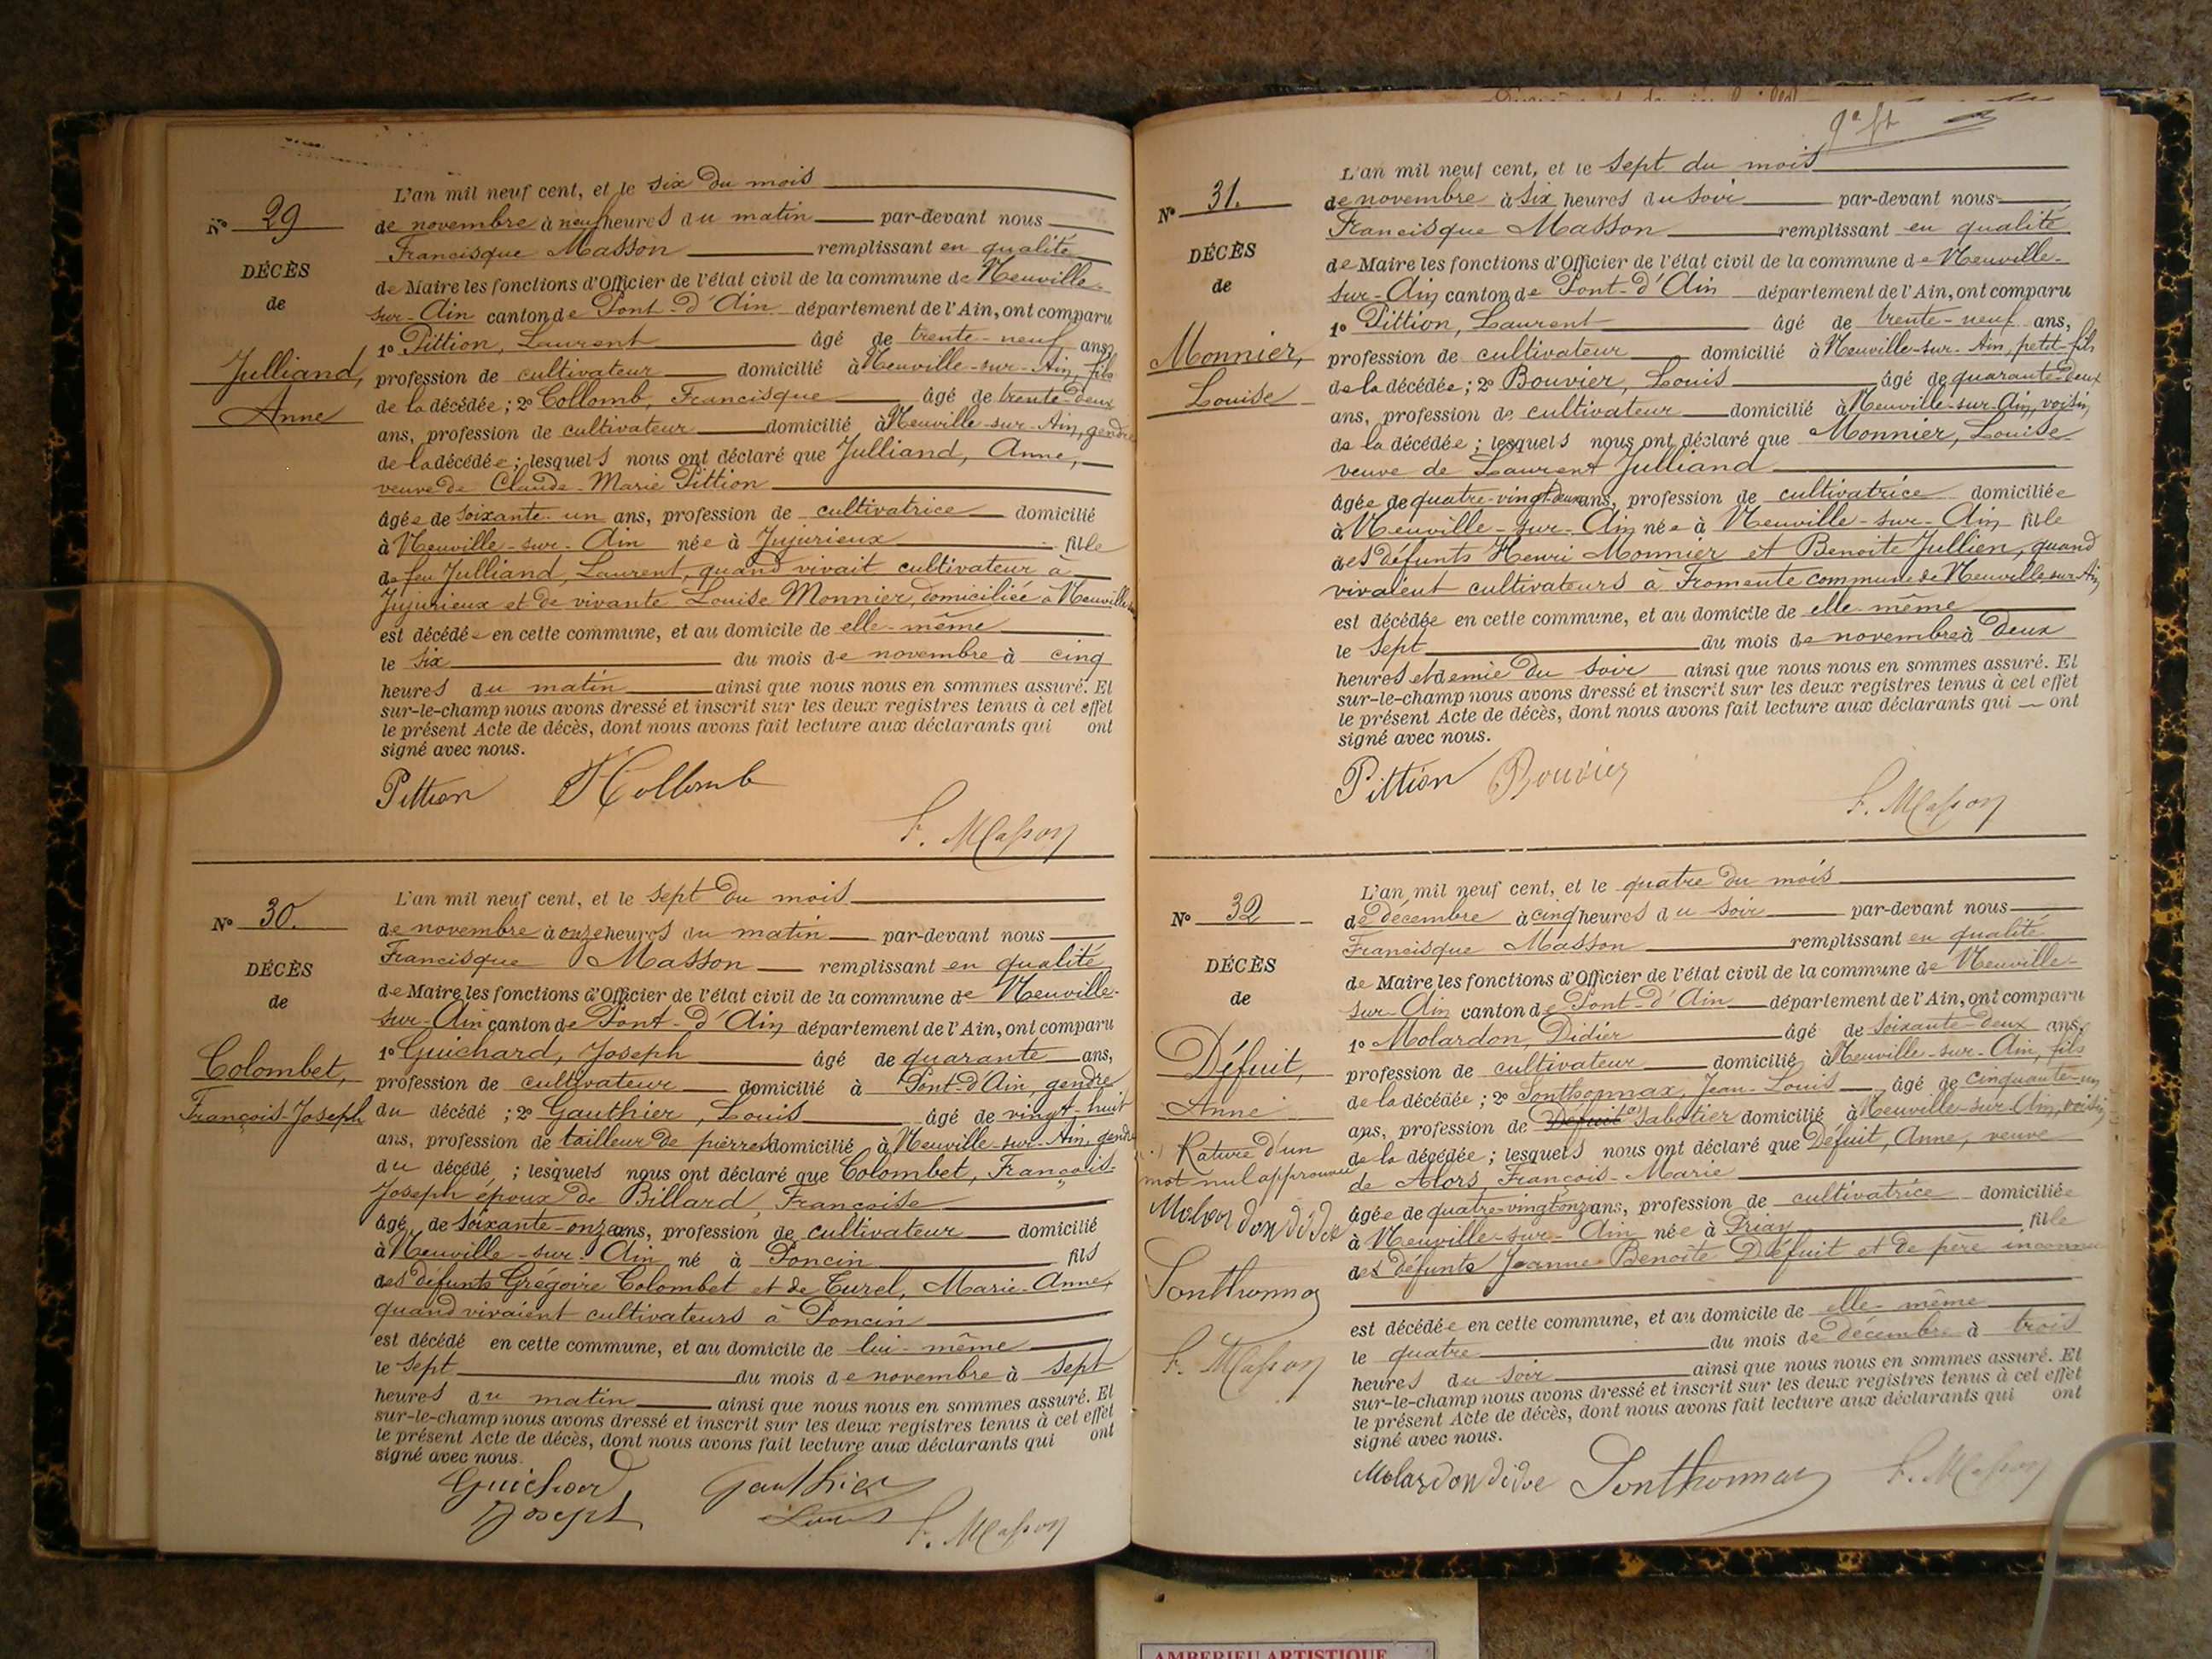 Nº 29
DÉCÈS
de
Julliand,
Anne
L'an mil neuf cent, et le six du mois
de novembre à neuf heures du matin par-devant nous
Francisque Masson remplissant en qualité
de Maire les fonctions d'Officier de l'état civil de la commune de Neuville-
sur-Ain canton de Pont-d'Ain département de l'Ain, ont comparu
1º Pittion, Laurent âgé de trente-neuf ans,
profession de cultivateur domicilié à Neuville-sur-Ain, fils
de la décédée; 2º Collomb, Francisque âgé de trente-deux
ans, profession de cultivateur domicilié à Neuville-sur-Ain, gendre
de la décédée; lesquels nous ont déclaré que Julliand, Anne,
veuve de Claude-Marie Pittion
âgée de soixante-un ans, profession de cultivatrice domicilié
à Neuville-sur-Ain née à Jujurieux fille
de feu Julliand, Laurent, quand vivait cultivateur à
Jujurieux et de vivante Louise Monnier, domiciliée à Neuville
est décédée en cette commune, et au domicile de elle-même
le six du mois de novembre à cinq
heures du matin ainsi que nous nous en sommes assuré. Et
sur-le-champ nous avons dressé et inscrit sur les deux registres tenus à cet effet
le présent Acte de décès, dont nous avons fait lecture aux déclarants qui ont
signé avec nous.
Pittion Collomb
F. Masson
Nº 30.
DÉCÈS
de
Colombet,
François-Joseph
L'an mil neuf cent, et le sept du mois
de novembre à onze heures du matin par-devant nous
Francisque Masson remplissant en qualité
de Maire les fonctions d'Officier de l'état civil de la commune de Neuville-
sur-Ain canton de Pont-d'Ain département de l'Ain, ont comparu
1º Guichard, Joseph âgé de quarante ans,
profession de cultivateur domicilié à Pont-d'Ain, gendre
du décédé; 2º Gauthier, Louis âgé de vingt-huit
ans, profession de tailleur de pierres domicilié à Neuville-sur-Ain, gendre
du décédé; lesquels nous ont déclaré que Colombet, François-
Joseph époux de Billard, Françoise
âgé de soixante-onze ans, profession de cultivateur domicilié
à Neuville-sur-Ain né à Poncin fils
des défunts Grégoire Colombet et de Turel, Marie-Anne,
quand vivaient cultivateurs à Poncin
est décédé en cette commune, et au domicile de lui-même
le sept du mois de novembre à sept
heures du matin ainsi que nous nous en sommes assuré. Et
sur-le-champ nous avons dressé et inscrit sur les deux registres tenus à cet effet
le présent Acte de décès, dont nous avons fait lecture aux déclarants qui ont
signé avec nous.
Guichard Gauthier
Joseph Louis F. Masson
Nº 31.
DÉCÈS
de
Monnier,
Louise
L'an mil neuf cent, et le sept du mois
de novembre à six heures du soir par-devant nous
Francisque Masson remplissant en qualité
de Maire les fonctions d'Officier de l'état civil de la commune de Neuville-
sur-Ain canton de Pont-d'Ain département de l'Ain, ont comparu
1º Pittion, Laurent âgé de trente-neuf ans,
profession de cultivateur domicilié à Neuville-sur-Ain, petit-fils
de la décédée; 2º Bouvier, Louis âgé de quarante-deux
ans, profession de cultivateur domicilié à Neuville-sur-Ain, voisin
de la décédée; lesquels nous ont déclaré que Monnier, Louise
veuve de Laurent Julliand
âgée de quatre-vingt ans, profession de cultivatrice domiciliée
à Neuville-sur-Ain née à Neuville-sur-Ain fille
des défunts Henri Monnier et Benoite Jullien, quand
vivaient cultivateurs à Fromente commune de Neuville sur Ain
est décédée en cette commune, et au domicile de elle-même
le sept du mois de novembre à deux
heures et demie du soir ainsi que nous nous en sommes assuré. Et
sur-le-champ nous avons dressé et inscrit sur les deux registres tenus à cet effet
le présent Acte de décès, dont nous avons fait lecture aux déclarants qui ont
signé avec nous.
Pittion Bouvier
F. Masson
Nº 32
DÉCÈS
de
Défuit,
Anne
Rature d'un
mot nul approuvée
Molardon didié
Sonthonnax
F. Masson
L'an mil neuf cent, et le quatre du mois
de décembre à cinq heures du soir par-devant nous
Francisque Masson remplissant en qualité
de Maire les fonctions d'Officier de l'état civil de la commune de Neuville-
sur-Ain canton de Pont-d'Ain département de l'Ain, ont comparu
1º Molardon, Didier âgé de soixante-deux ans,
profession de cultivateur domicilié à Neuville-sur-Ain, fils
de la décédée; 2º Sonthonnax, Jean-Louis âgé de cinquante-un
ans, profession de Défuit sabotier domicilié à Neuville-sur-Ain, voisin
de la décédée; lesquels nous ont déclaré que Défuit, Anne, veuve
de Alors, François-Marie
âgée de quatre-vingt-onze ans, profession de cultivatrice domiciliée
à Neuville-sur-Ain née à Priay fille
des défunts Jeanne-Benoîte Défuit et de père inconnu
est décédée en cette commune, et au domicile de elle-même
le quatre du mois de décembre à trois
heures du soir ainsi que nous nous en sommes assuré. Et
sur-le-champ nous avons dressé et inscrit sur les deux registres tenus à cet effet
le présent Acte de décès, dont nous avons fait lecture aux déclarants qui ont
signé avec nous.
Molardon didié Sonthonnax F. Masson
AMBERIEU ARTISTIQUE